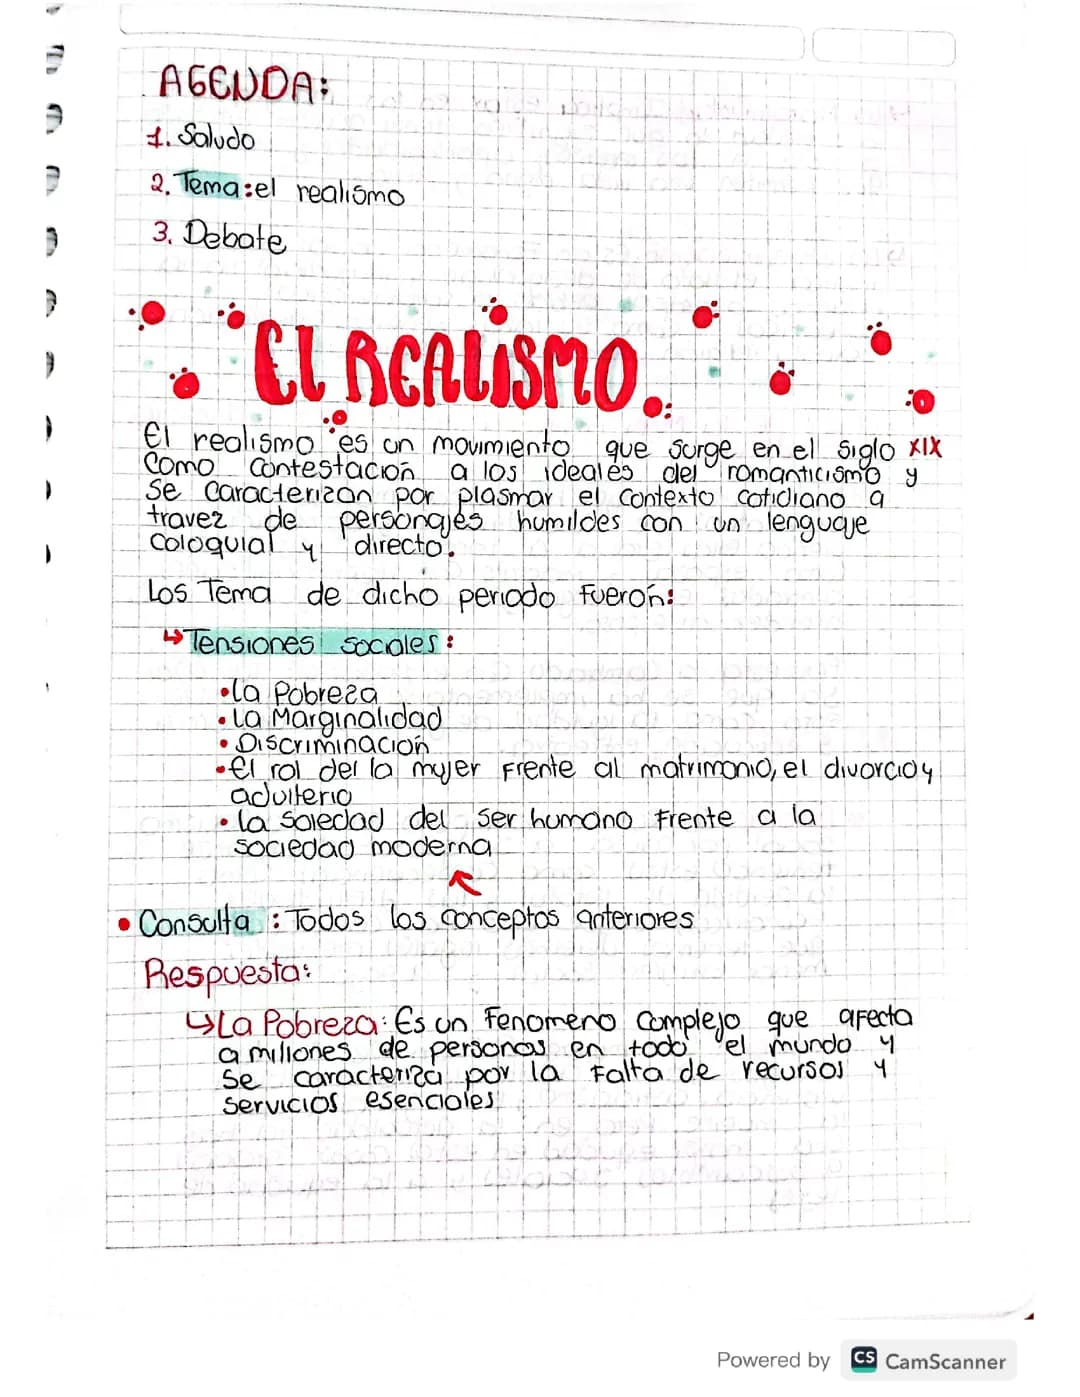 AGENDA:
1. Saludo
2. Tema: el realismo
3. Debate
El REALISMO.
El realismo es un movimiento que surge en el siglo XIX
Como contestación a los ideales del romanticismo y
Se caracterizan por plasmar el contexto cotidiano a
travez de personajes humildes con un lenguaje
Coloquial y directo.
Los Tema de dicho periodo Fuerón:
↳Tensiones sociales:
•La Pobreza
•La Marginalidad
•Discriminación
•El rol del la mujer Frente al matrimonio, el divorcio y
adulterio
•la soledad del ser humano Frente a la
sociedad moderna
•Consulta: Todos los conceptos anteriores
Respuesta:
↳La Pobreza: Es un Fenomeno Complejo que afecta
a millones de personas en todo el mundo y
Se caracteriza por la Falta de recursos y
Servicios esenciales
Powered by CS CamScanner